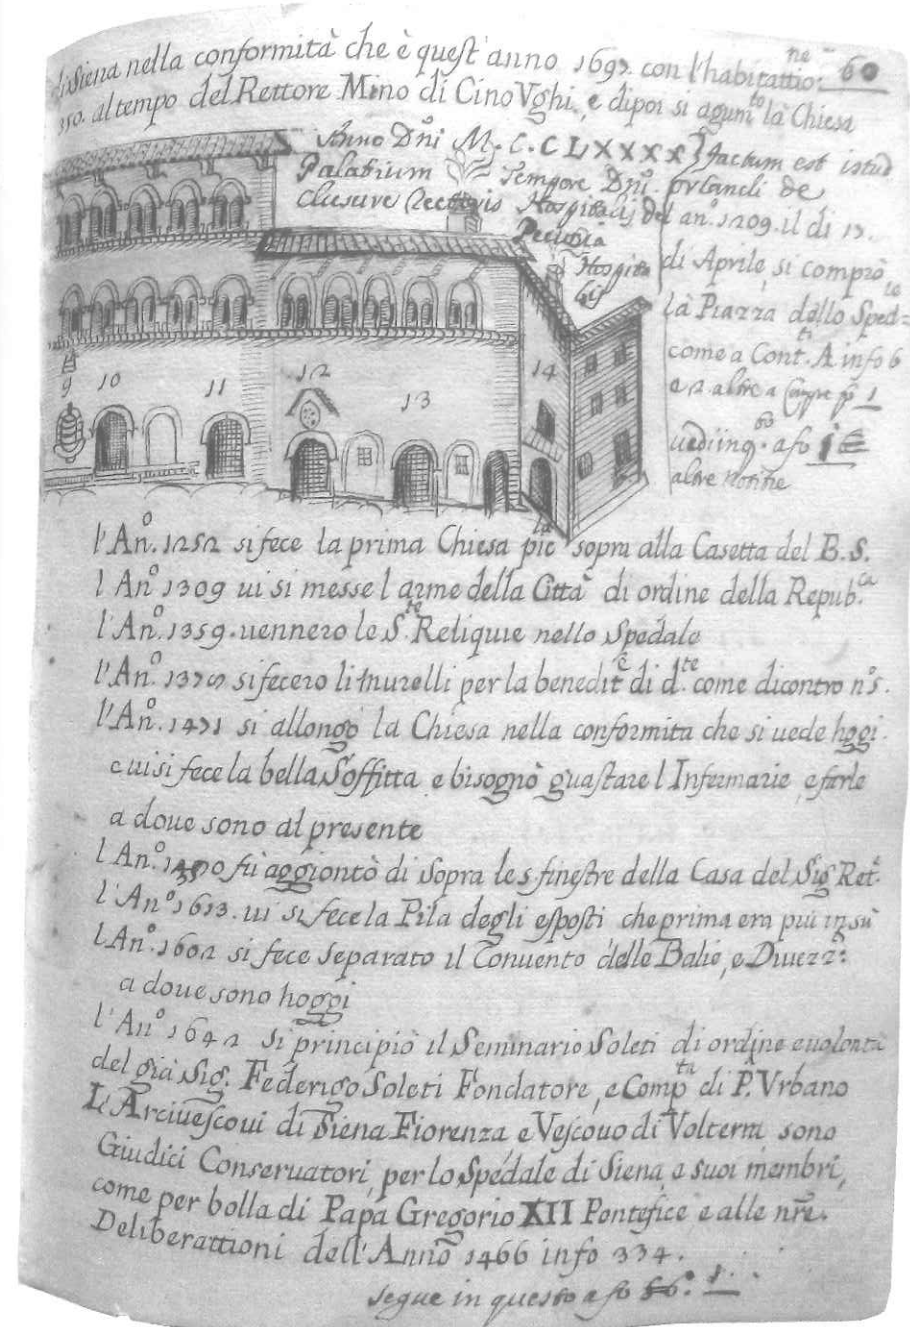 di Siena nella conformità che è quest'anno 1697. con l'habitattio:ne 60
al tempo del Rettore Mino di Cino Vghi, e dipoi si agum.to la Chiesa
Anno Dñi M. C. C LXXXX factum est istud
Palatium Tempore Dñi. Orlandi de
Clusure Rectoris Hospitalis del an.o 1209. il di 13.
Hospita
lis
di Aprile, si comprò
la Piazza dello Sped=le
come a Cont.ti A info 6
e 12 altre a
uedi in q.o a fo
altre notitie
9 10 11 12 13 14
l'An.o 1252 si fece la prima Chiesa più la sopra alla Casetta del B. S.
l An.o 1309 ui si messe l arme della Città di ordine della Repub.ca
l'An.o 1359. uennero le S.te Reliquie nello Spedale
l'An.o si fecero li Murelli per la benedit.e di d.te come dicontro n.o 5.
l'An.o 1471 si allongò la Chiesa nella conformita che si uede hggi.
e ui si fece la bella Soffitta e bisognò guastare l Infermarie, e farle
a doue sono al presente
l An.o fù aggiontò di sopra le 5 finestre della Casa del Sig Ret.e
l'An.o 1613. ui si fece la Pila degli esposti che prima era più in sù
l An.o 1602 si fece separato il Conuento delle Balie, e Diuezz:
a doue sono hoggi
l'An.o 1642 si principiò il Seminario Soleti di ordine e uolontà
del già Sig. Federigo Soleti Fondatore, e Comp.ta di P. Vrbano
L'Arciuescoui di Siena Fiorenza e Vescouo di Volterra sono
Giudici Conseruatori, per lo Spedale di Siena, e suoi membri,
come per bolla di Papa Gregorio XII Pontefice e alle nr̃e.
Deliberattioni dell'Anno 1466 in fo 334.
segue in questo a fo